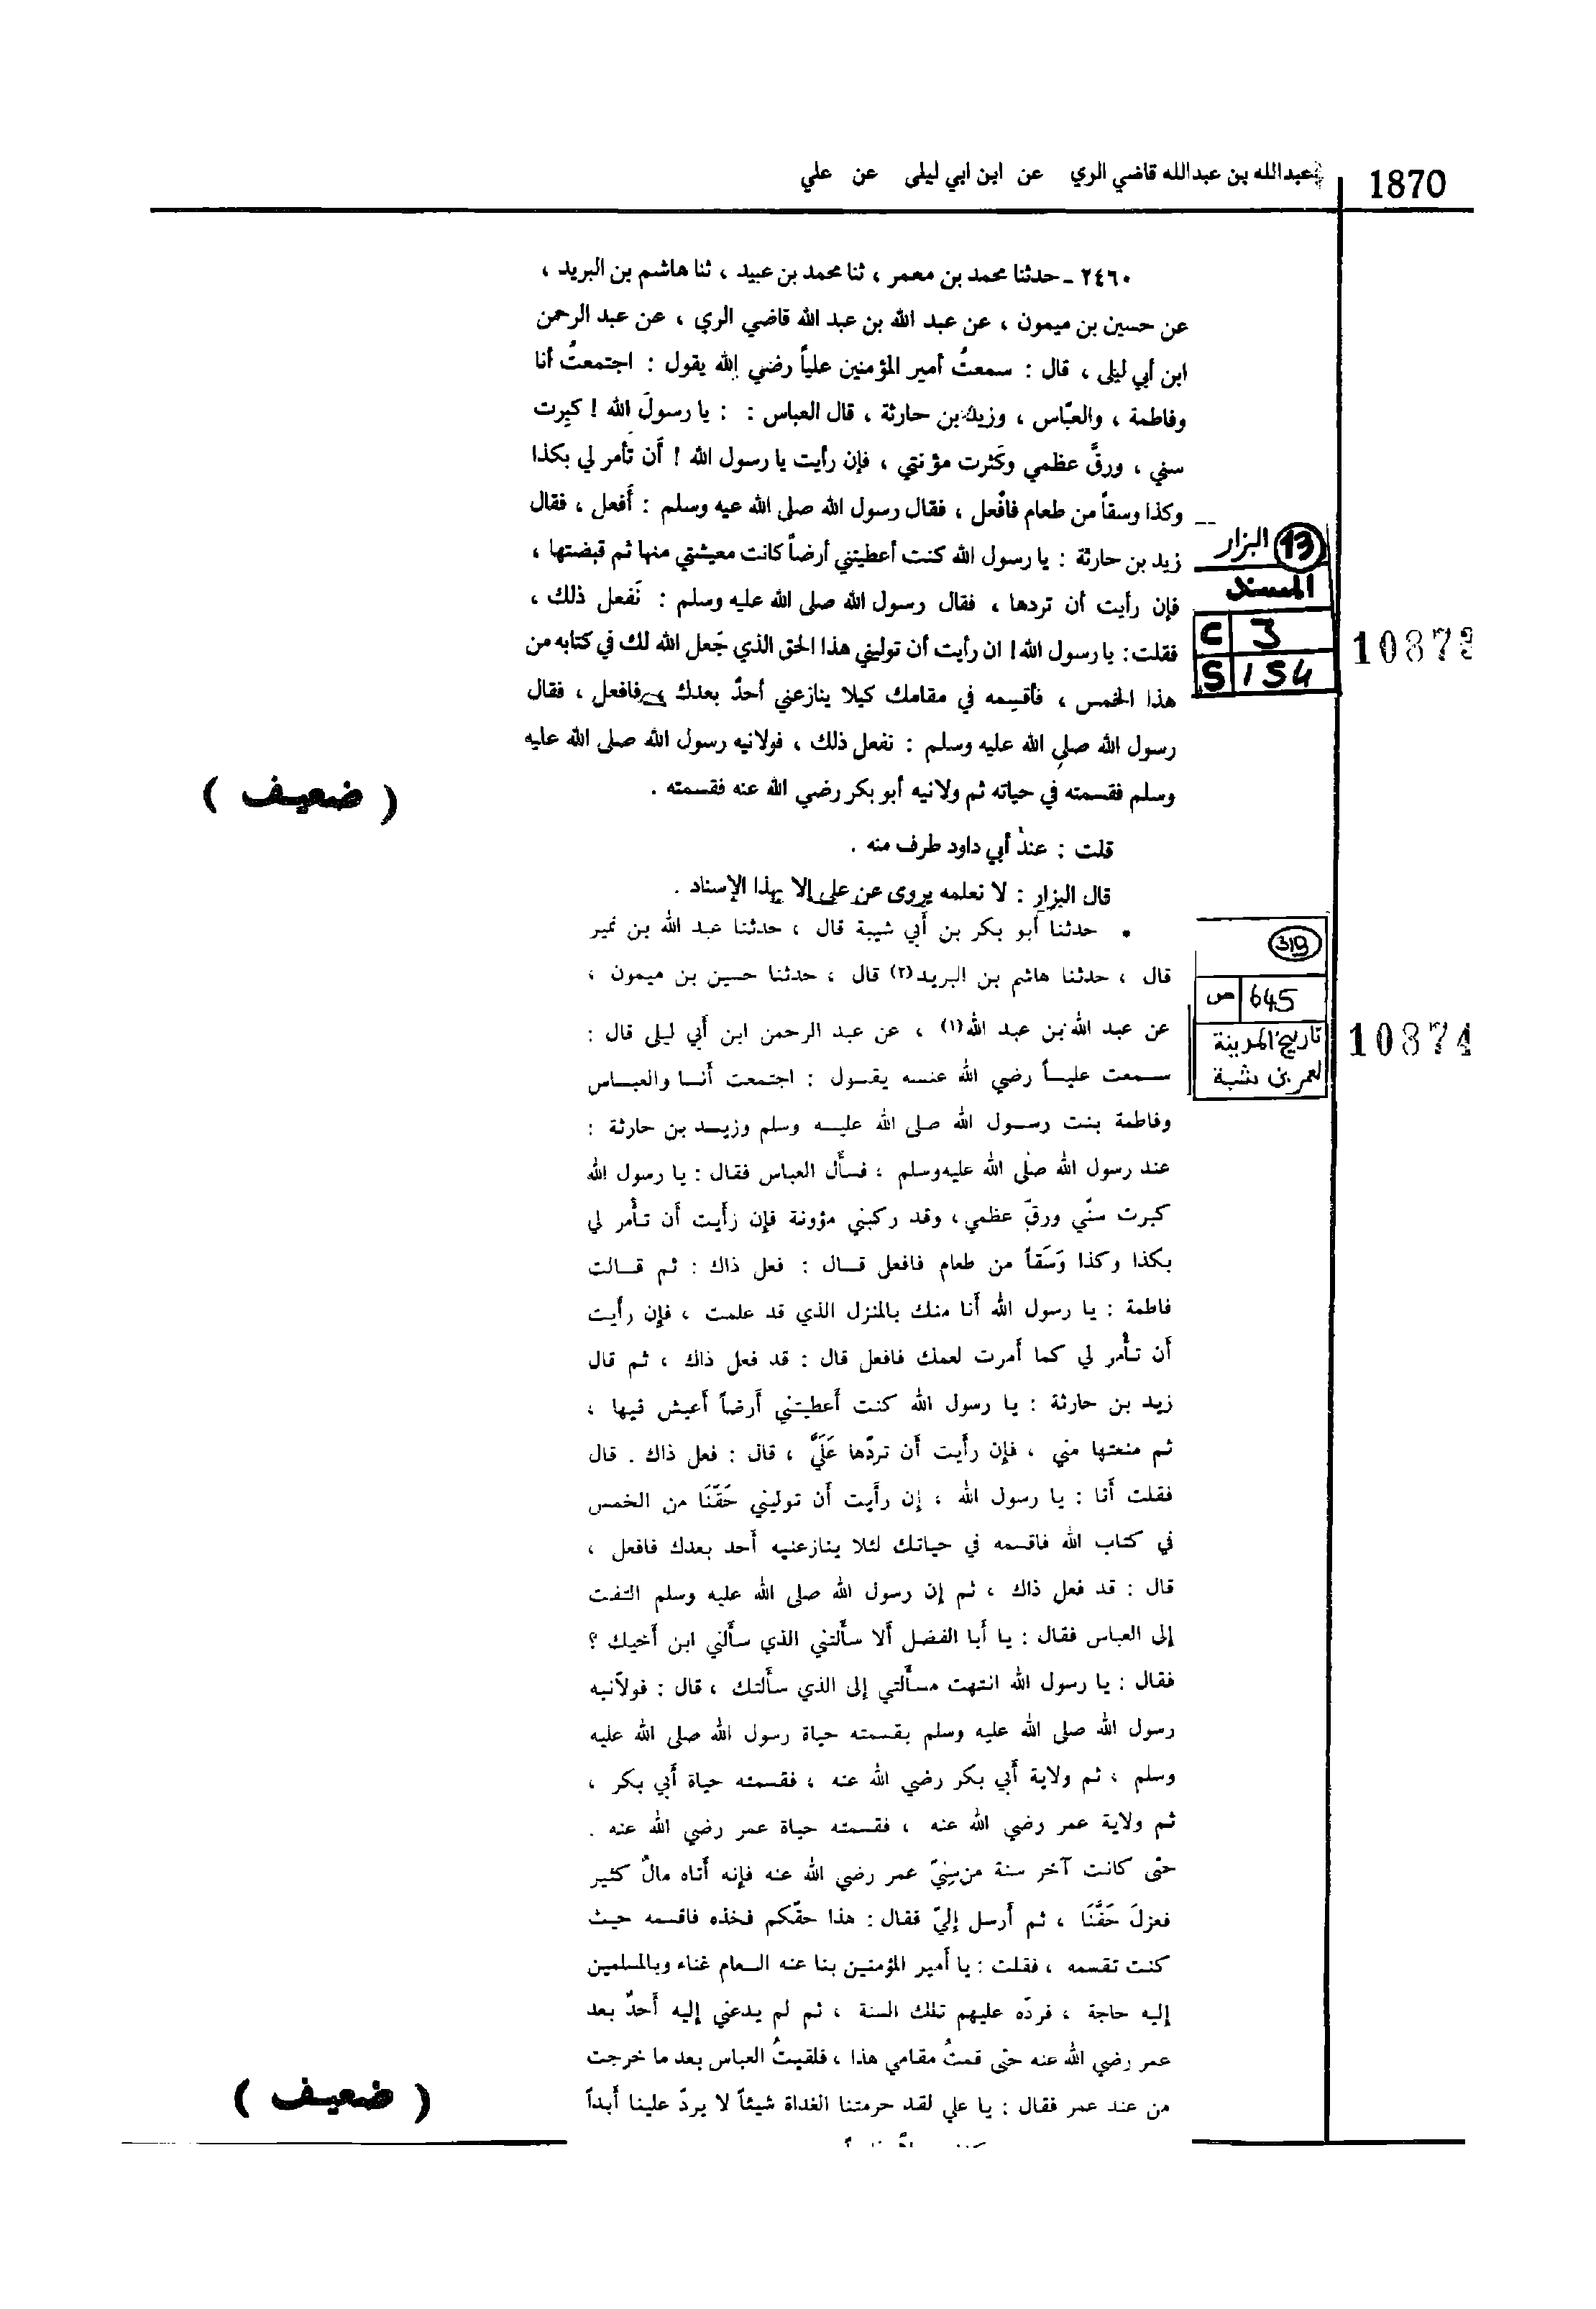 1870
عبدالله بن عبدالله قاضي الري عن ابن ابي ليلى عن علي
٢٤٦٠ ـ حدثنا محمد بن معمر ، ثنا محمد بن عبيد ، ثنا هاشم بن البريد ،
عن حسين بن ميمون ، عن عبد الله بن عبد الله قاضي الري ، عن عبد الرحمن
ابن أبي ليلى ، قال : سمعتُ أمير المؤمنين علياً رضي الله يقول : اجتمعتُ أنا
وفاطمة ، والعبّاس ، وزيد بن حارثة ، قال العباس : : يا رسولَ الله ! كبِرت
سني ، ورقَّ عظمي وكَثرت مؤنتي ، فإن رأيت يا رسول الله ! أن تَأمر لي بكذا
وكذا وسقاً من طعام فافْعل ، فقال رسول الله صلى الله عيه وسلم : أَفعل ، فقال
زيد بن حارثة : يا رسول الله كنت أعطيتني أرضاً كانت معيشتي منها ثم قبضتها ،
فإن رأيت أن تردها ، فقال رسول الله صلى الله عليه وسلم : نَفعل ذلك ،
فقلت : يا رسول الله ! ان رأيت أن توليني هذا الحق الذي جَعل الله لك في كتابه من
هذا الخمس ، فأقسِمه في مقامك كيلا ينازعني أحدٌ بعدك فافعل ، فقال
رسول الله صلى الله عليه وسلم : نفعل ذلك ، فولانيه رسول الله صلى الله عليه
وسلم فقسمته في حياته ثم ولانيه أبو بكر رضي الله عنه فقسمته .
( ضعيف )
قلت : عند أبي داود طرف منه .
قال البزار : لا نعلمه يروى عن علي إلا بهذا الإسناد .
13 البزار
المسند
C 3
S 154
1087
• حدثنا أبو بكر بن أبي شيبة قال ، حدثنا عبد الله بن نمير
قال ، حدثنا هاشم بن البريد(٢) قال ، حدثنا حسين بن ميمون ،
عن عبد الله بن عبد الله(١) ، عن عبد الرحمن ابن أبي ليلى قال :
سمعت علياً رضي الله عنه يقول : اجتمعت أنا والعباس
وفاطمة بنت رسول الله صلى الله عليه وسلم وزيد بن حارثة :
عند رسول الله صلى الله عليه وسلم ، فسأل العباس فقال : يا رسول الله
كبرت سنّي ورقّ عظمي ، وقد ركبني مؤونة فإن رأيت أن تأمر لي
بكذا وكذا وَسَقاً من طعام فافعل قال : فعل ذاك : ثم قالت
فاطمة : يا رسول الله أنا منك بالمنزل الذي قد علمت ، فإن رأيت
أن تأمر لي كما أمرت لعمك فافعل قال : قد فعل ذاك ، ثم قال
زيد بن حارثة : يا رسول الله كنت أعطيتني أرضاً أعيش فيها ،
ثم منعتها مني ، فإن رأيت أن تردّها عَلَيَّ ، قال : فعل ذاك . قال
فقلت أنا : يا رسول الله ، إن رأيت أن توليني حَقَّنَا من الخمس
في كتاب الله فاقسمه في حياتك لئلا ينازعنيه أحد بعدك فافعل ،
قال : قد فعل ذاك ، ثم إن رسول الله صلى الله عليه وسلم التفت
إلى العباس فقال : يا أبا الفضل ألا سألتني الذي سألني ابن أخيك ؟
فقال : يا رسول الله انتهت مسألتي إلى الذي سألتك ، قال : فولاّنيه
رسول الله صلى الله عليه وسلم بقسمته حياة رسول الله صلى الله عليه
وسلم ، ثم ولاية أبي بكر رضي الله عنه ، فقسمته حياة أبي بكر ،
ثم ولاية عمر رضي الله عنه ، فقسمته حياة عمر رضي الله عنه .
حتى كانت آخر سنة من سِنِيّ عمر رضي الله عنه فإنه أتاه مالٌ كثير
فعزلَ حَقَّنَا ، ثم أرسل إليّ فقال : هذا حقّكم فخذه فاقسمه حيث
كنت تقسمه ، فقلت : يا أمير المؤمنين بنا عنه العام غناء وبالمسلمين
إليه حاجة ، فردّه عليهم تلك السنة ، ثم لم يدعني إليه أحدٌ بعد
عمر رضي الله عنه حتى قمتُ مقامي هذا ، فلقيتُ العباس بعد ما خرجت
من عند عمر فقال : يا علي لقد حرمتنا الغداة شيئاً لا يردّ علينا أبداً
( ضعيف )
319
ص 645
تاريخ المدينة
لعمر بن شبة
10874